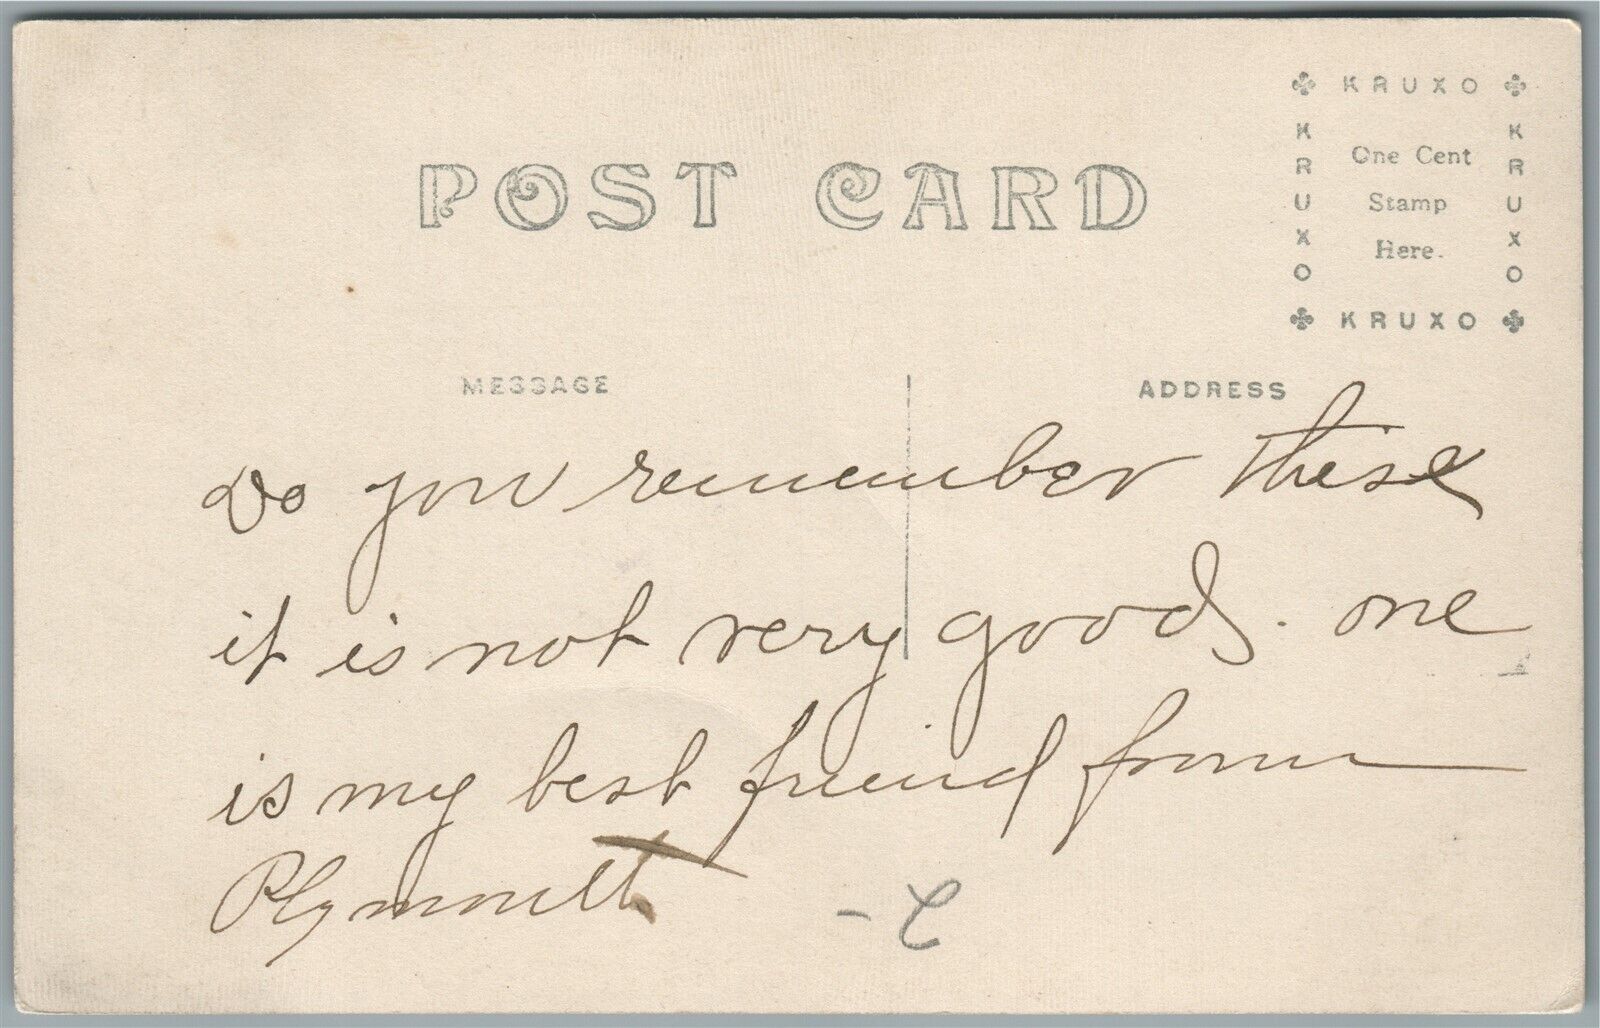 KRUXO
KRUXO
KRUXO
One Cent
Stamp
Here.
KRUXO
POST CARD
MESSAGE
ADDRESS
Do you remember these
it is not very good. one
is my best friend from
Plymouth.